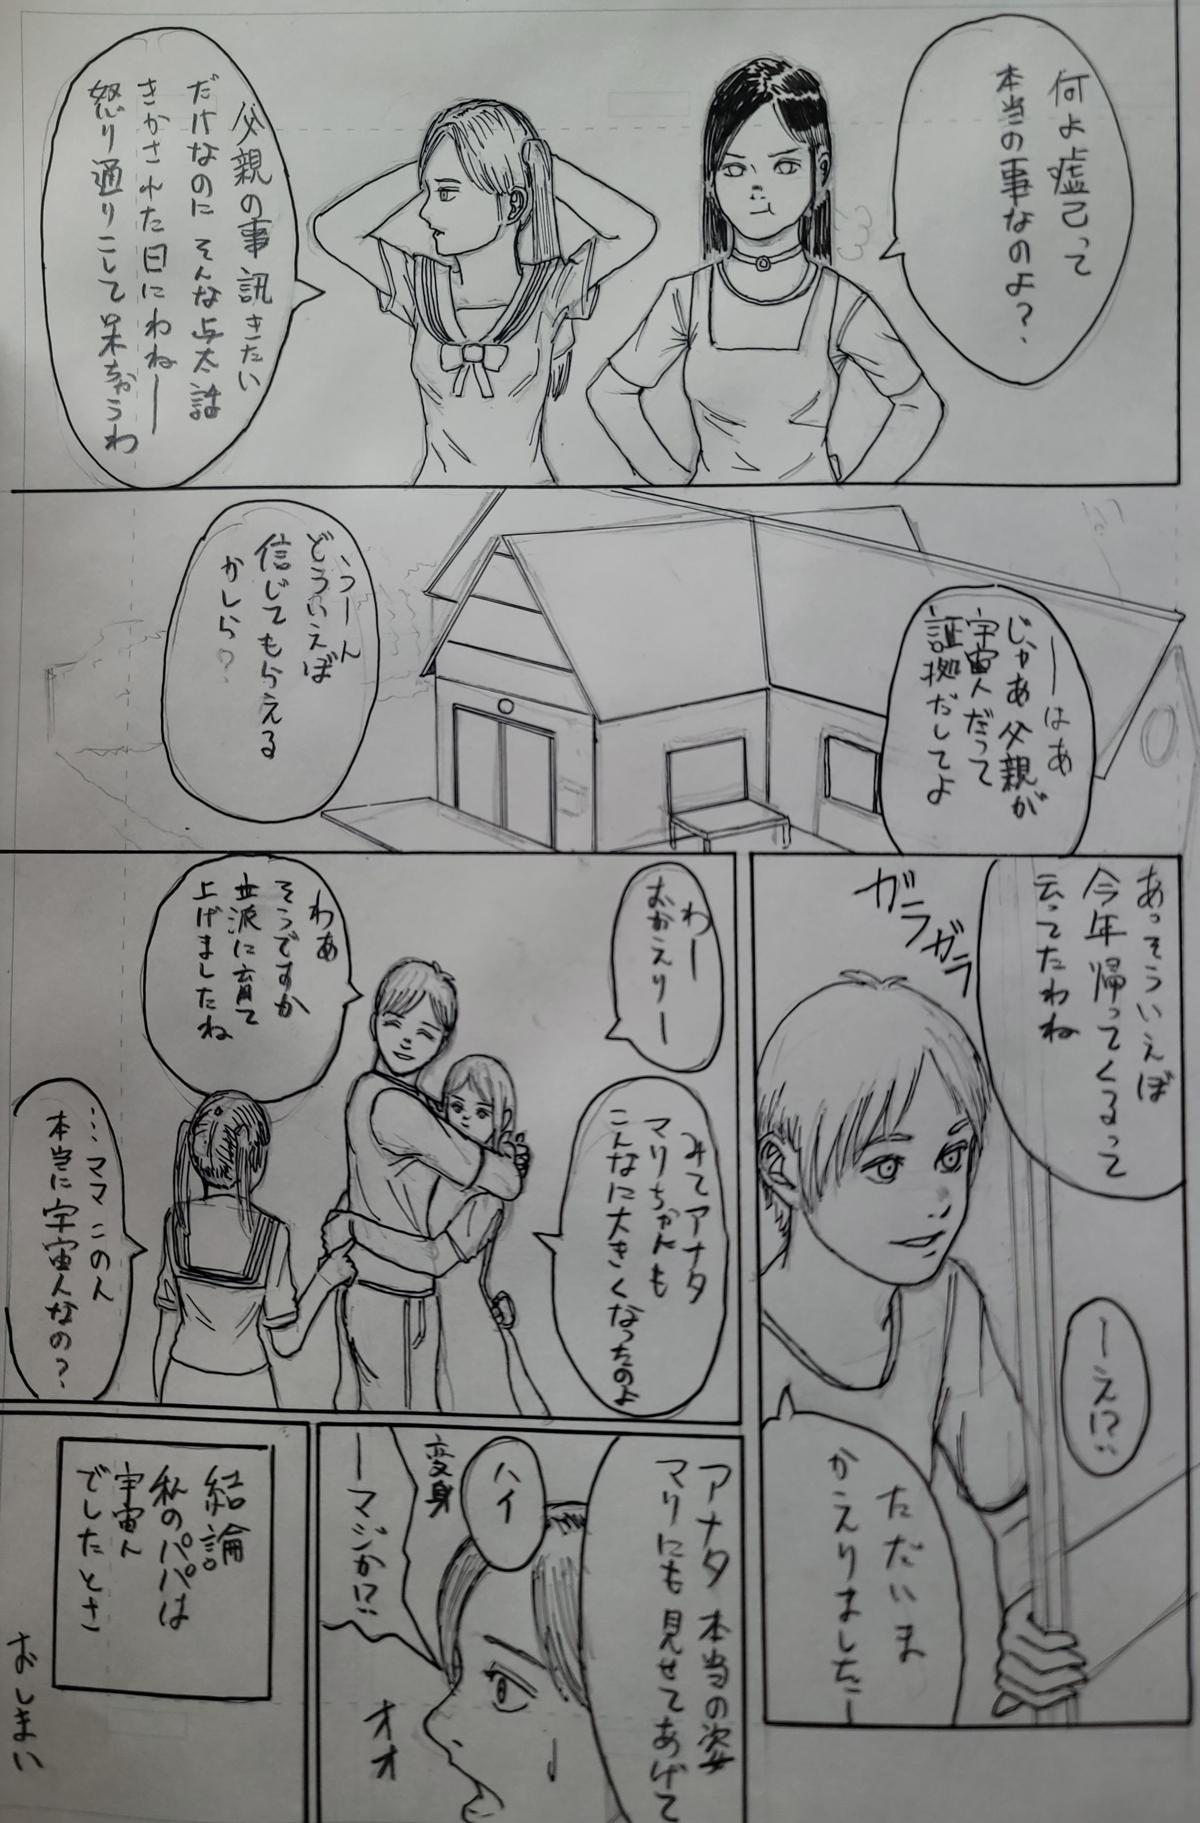 何よ嘘つって
本当の事なのよ?
父親の事訊きたい
だけなのにそんな与太話
きかされた日にわねー
怒り通りこして呆れちゃうわ
ーはあ
じゃあ父親が
宇宙人だって
証拠だしてよ
うーん
どういえば
信じてもらえる
かしら?
あっそういえば
今年帰ってくるって
云ってたわね
ガラガラ
ーえ!?
ただいま
かえりましたー
わー
おかえりー
みてアナタ
マリちゃんも
こんなに大きくなったのよ
わあ
そうですか
立派に育て
上げましたね
…ママこの人
本当に宇宙人なの?
アナタ本当の姿
マリにも見せてあげて
ハイ
変身
ーマジか!?
オオ
結論
私のパパは
宇宙人
でしたとさ
おしまい